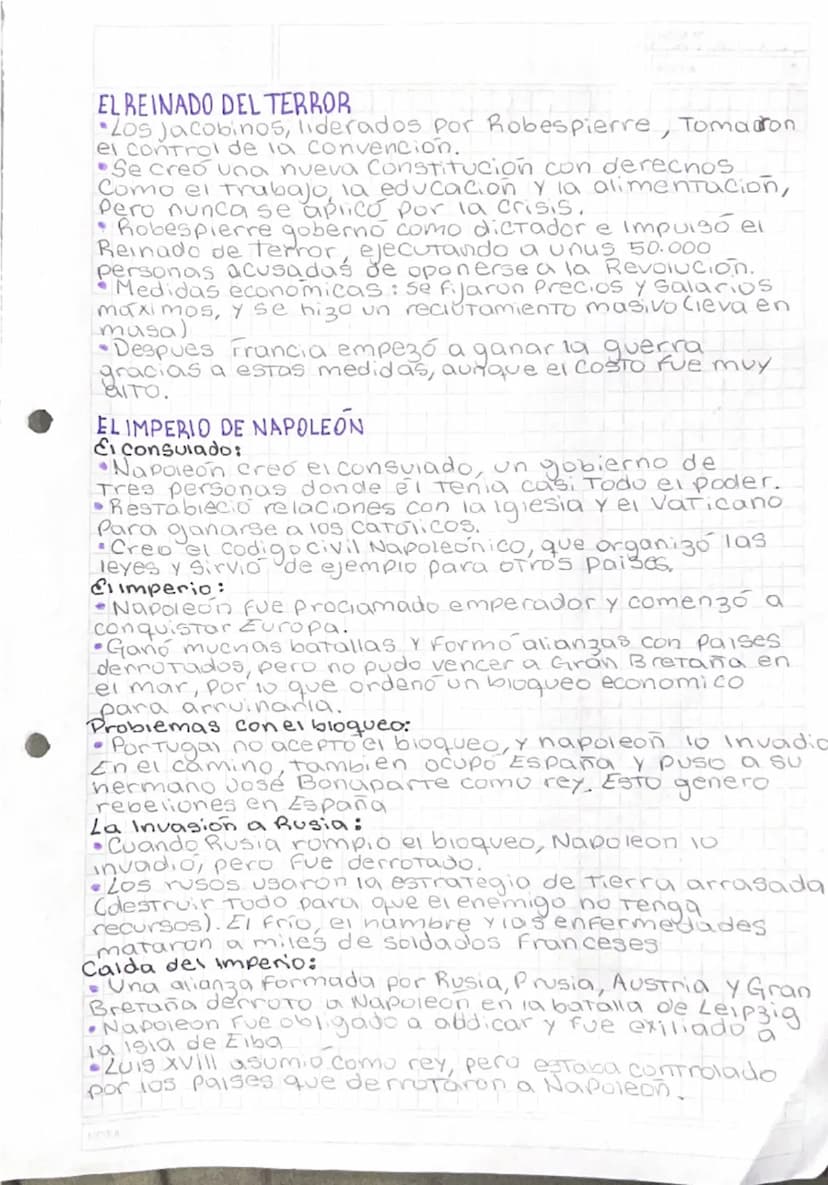 EL REINADO DEL TERROR
• Los Jacobinos, liderados por Robespierre, Tomaron
el control de la convención.
• Se creó una nueva Constitución con derechos
Como el trabajo, la educación y la alimentación,
pero nunca se aplicó por la crisis.
• Robespierre gobernó como dictador e impulsó el
Reinado de terror, ejecutando a unus 50.000
personas acusadas de oponerse a la Revolución.
• Medidas económicas: se fijaron precios y salarios
máximos, y se hizo un reclutamiento masivo (leva en
masa)
• Despues Francia empezó a ganar la guerra
gracias a estas medidas, aunque el costo fue muy
alto.
EL IMPERIO DE NAPOLEÓN
El consulado:
• Napoleón creó el consulado, un gobierno de
Tres personas donde él tenía casi todo el poder.
• Restableció relaciones con la iglesia y el Vaticano
Para ganarse a los católicos.
• Creo el codigo civil Napoleónico, que organizó las
leyes y sirvió de ejemplo para otros países.
El imperio:
• Napoleón fue proclamado emperador y comenzó a
conquistar Europa.
• Ganó muchas batallas y formó alianzas con países
derrotados, pero no pudo vencer a Gran Bretaña en
el mar, por lo que ordenó un bloqueo economico
para arruinarla.
Problemas con el bloqueo:
• Portugal no acepto el bloqueo, y napoleón lo invadio
En el camino, tambien ocupó España y puso a su
hermano José Bonaparte como rey. Esto genero
rebeliones en España
La Invasión a Rusia:
• Cuando Rusia rompio el bloqueo, Napoleon lo
invadió, pero fue derrotado.
• Los rusos usaron la estrategia de tierra arrasada
(destruir todo para que el enemigo no tenga
recursos). El frío, el hambre y las enfermedades
mataron a miles de soldados franceses
Caida del imperio:
• Una alianza formada por Rusia, Prusia, Austria y Gran
Bretaña derroto a Napoleon en la batalla de Leipzig
• Napoleon fue obligado a abdicar y fue exiliado a
la isla de Elba
• Luis XVIII asumió como rey, pero estaba controlado
por los países que derrotaron a Napoleón.